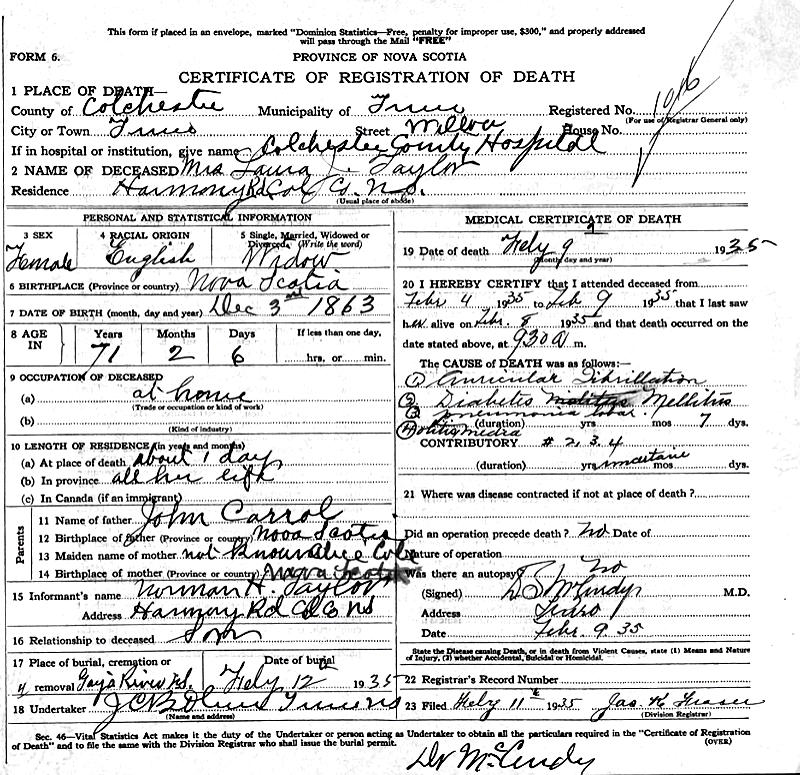 This form if placed in an envelope, marked "Dominion Statistics—Free, penalty for improper use, $300," and properly addressed
will pass through the Mail "FREE"
FORM 6.
PROVINCE OF NOVA SCOTIA
CERTIFICATE OF REGISTRATION OF DEATH
1 PLACE OF DEATH—
County of Colchester Municipality of Truro Registered No. 1016
(For use of Registrar General only)
City or Town Truro Street Willow House No.
If in hospital or institution, give name Colchester County Hospital
2 NAME OF DECEASED Mrs Laura J. Taylor
Residence Harmony Rd Col Co. N.S.
(Usual place of abode)
PERSONAL AND STATISTICAL INFORMATION
3 SEX 4 RACIAL ORIGIN 5 Single, Married, Widowed or
Divorced. (Write the word)
Female English Widow
6 BIRTHPLACE (Province or country) Nova Scotia
7 DATE OF BIRTH (month, day and year) Dec 3rd 1863
8 AGE IN Years Months Days If less than one day,
71 2 6 hrs. or min.
9 OCCUPATION OF DECEASED
(a) at home
(Trade or occupation or kind of work)
(b)
(Kind of industry)
10 LENGTH OF RESIDENCE (in years and months)
(a) At place of death about 1 day
(b) In province all her life
(c) In Canada (if an immigrant)
Parents
11 Name of father John Carrol
12 Birthplace of father (Province or country) Nova Scotia
13 Maiden name of mother not Known
14 Birthplace of mother (Province or country) Nova Scotia
15 Informant's name Norman H. Taylor
Address Harmony Rd Col Co NS
16 Relationship to deceased Son
17 Place of burial, cremation or Date of burial
removal Gay's River N.S. Feby 12th 1935
18 Undertaker Truro NS
(Name and address)
MEDICAL CERTIFICATE OF DEATH
19 Date of death Feby 9 1935
(Month, day and year)
20 I HEREBY CERTIFY that I attended deceased from
Febr 4 1935 to Feb 9 1935 that I last saw
her alive on Febr. 8 1935 and that death occurred on the
date stated above, at 930 a m.
The CAUSE OF DEATH was as follows:—
(1) Auricular Fibrillation
(2) Diabetes Mellitus
(3) pneumonia lobar.
(duration) yrs mos 7 dys.
(4) Otitis media
CONTRIBUTORY # 2, 3, 4
(duration) yrs uncertain mos dys.
21 Where was disease contracted if not at place of death?
Did an operation precede death? No Date of
Nature of operation
Was there an autopsy? No
(Signed) M.D.
Address Truro
Date Febr. 9. 35
State the Disease causing Death, or in death from Violent Causes, state (1) Means and Nature
of Injury, (2) whether Accidental, Suicidal or Homicidal.
22 Registrar's Record Number
23 Filed Feby 11th 1935 Jas. K Fraser
(Division Registrar)
Sec. 46—Vital Statistics Act makes it the duty of the Undertaker or person acting as Undertaker to obtain all the particulars required in the "Certificate of Registration
of Death" and to file the same with the Division Registrar who shall issue the burial permit. (OVER)